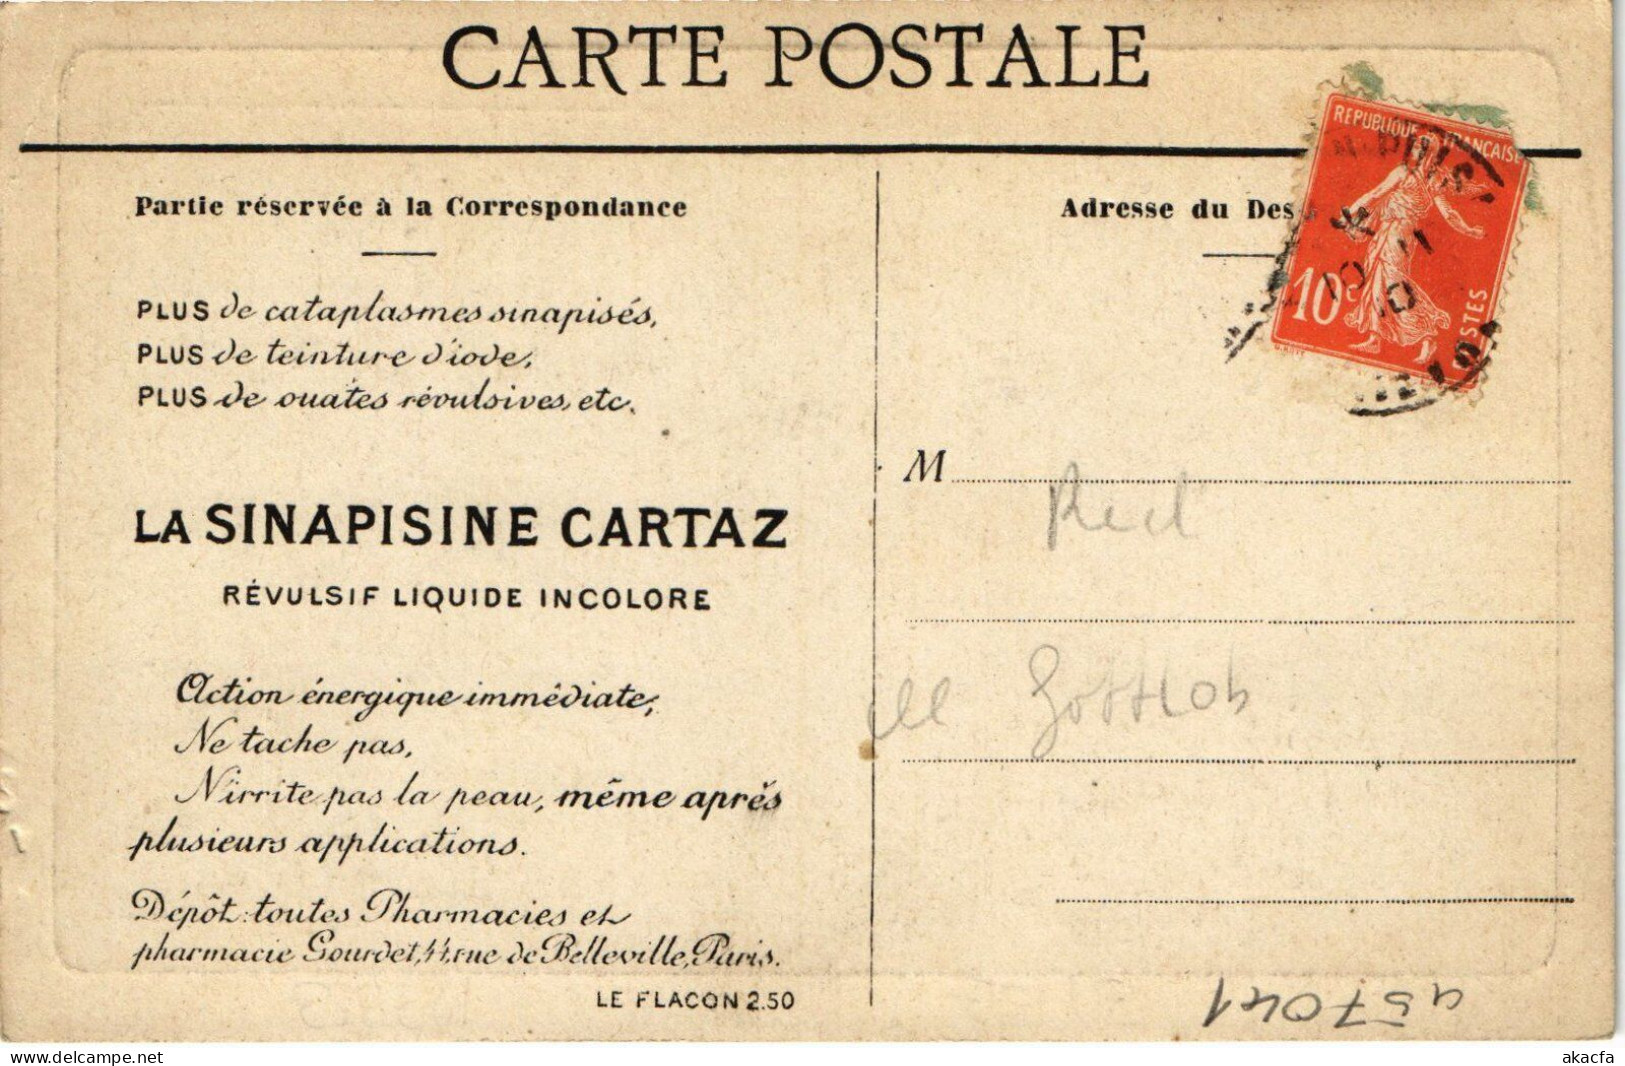 CARTE POSTALE
Partie réservée à la Correspondance
PLUS de cataplasmes sinapisés,
PLUS de teinture d'iode,
PLUS de ouates révulsives, etc.
LA SINAPISINE CARTAZ
RÉVULSIF LIQUIDE INCOLORE
Action énergique immédiate,
Ne tache pas,
N'irrite pas la peau, même après
plusieurs applications.
Dépôt: toutes Pharmacies et
pharmacie Gourdet, 44, rue de Belleville, Paris.
LE FLACON 2.50
Adresse du Des
REPUBLIQUE FRANÇAISE
10c
POSTES
M
457041
akacfa-delcampe.net
akacfa